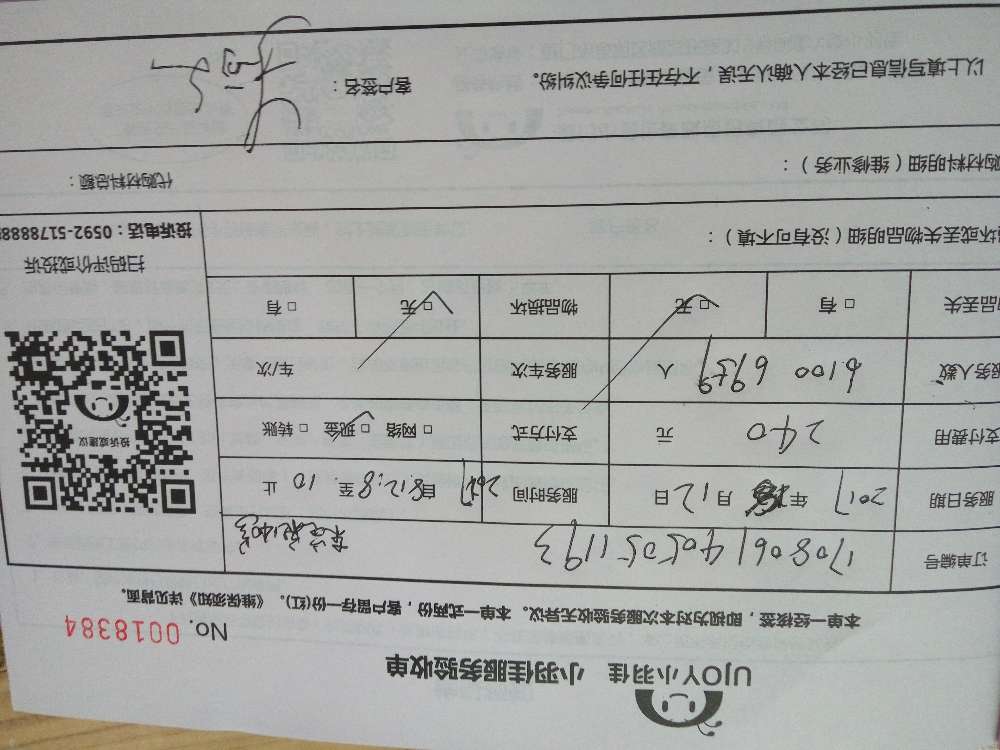 UJOY小羽佳 小羽佳服务验收单
No. 0018384
本单一经核签，即视为对本次服务验收无异议。本单一式两份，客户留存一份(红)。《维保须知》详见背面。
订单编号 1708061405051193
服务日期 2017 年 月 12 日 服务时间 自 8 至 10 止
支付费用 240 元 支付方式 □ 网络 □ 现金 □ 转账
服务人数 6100 6959 人 服务车次 车/次
物品丢失 □ 有 □ 无 物品损坏 □ 无 □ 有
投诉或建议
扫码评价或投诉
投诉电话：0592-5178888
损坏或丢失物品明细（没有可不填）：
代购材料明细（维修业务）： 代购材料总额：
以上填写信息已经本人确认无误，不存在任何争议纠纷。 客户签名：